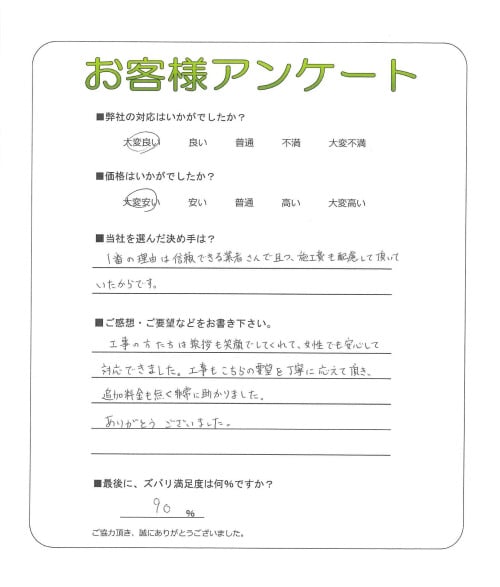 お客様アンケート
■弊社の対応はいかがでしたか？
大変良い 良い 普通 不満 大変不満
■価格はいかがでしたか？
大変安い 安い 普通 高い 大変高い
■当社を選んだ決め手は？
1番の理由は信頼できる業者さんで且つ、施工費も配慮して頂いて
いたからです。
■ご感想・ご要望などをお書き下さい。
工事の方たちは挨拶も笑顔でしてくれて、女性でも安心して
対応できました。工事もこちらの要望を丁寧に応えて頂き、
追加料金も無く非常に助かりました。
ありがとうございました。
■最後に、ズバリ満足度は何%ですか？
90 %
ご協力頂き、誠にありがとうございました。